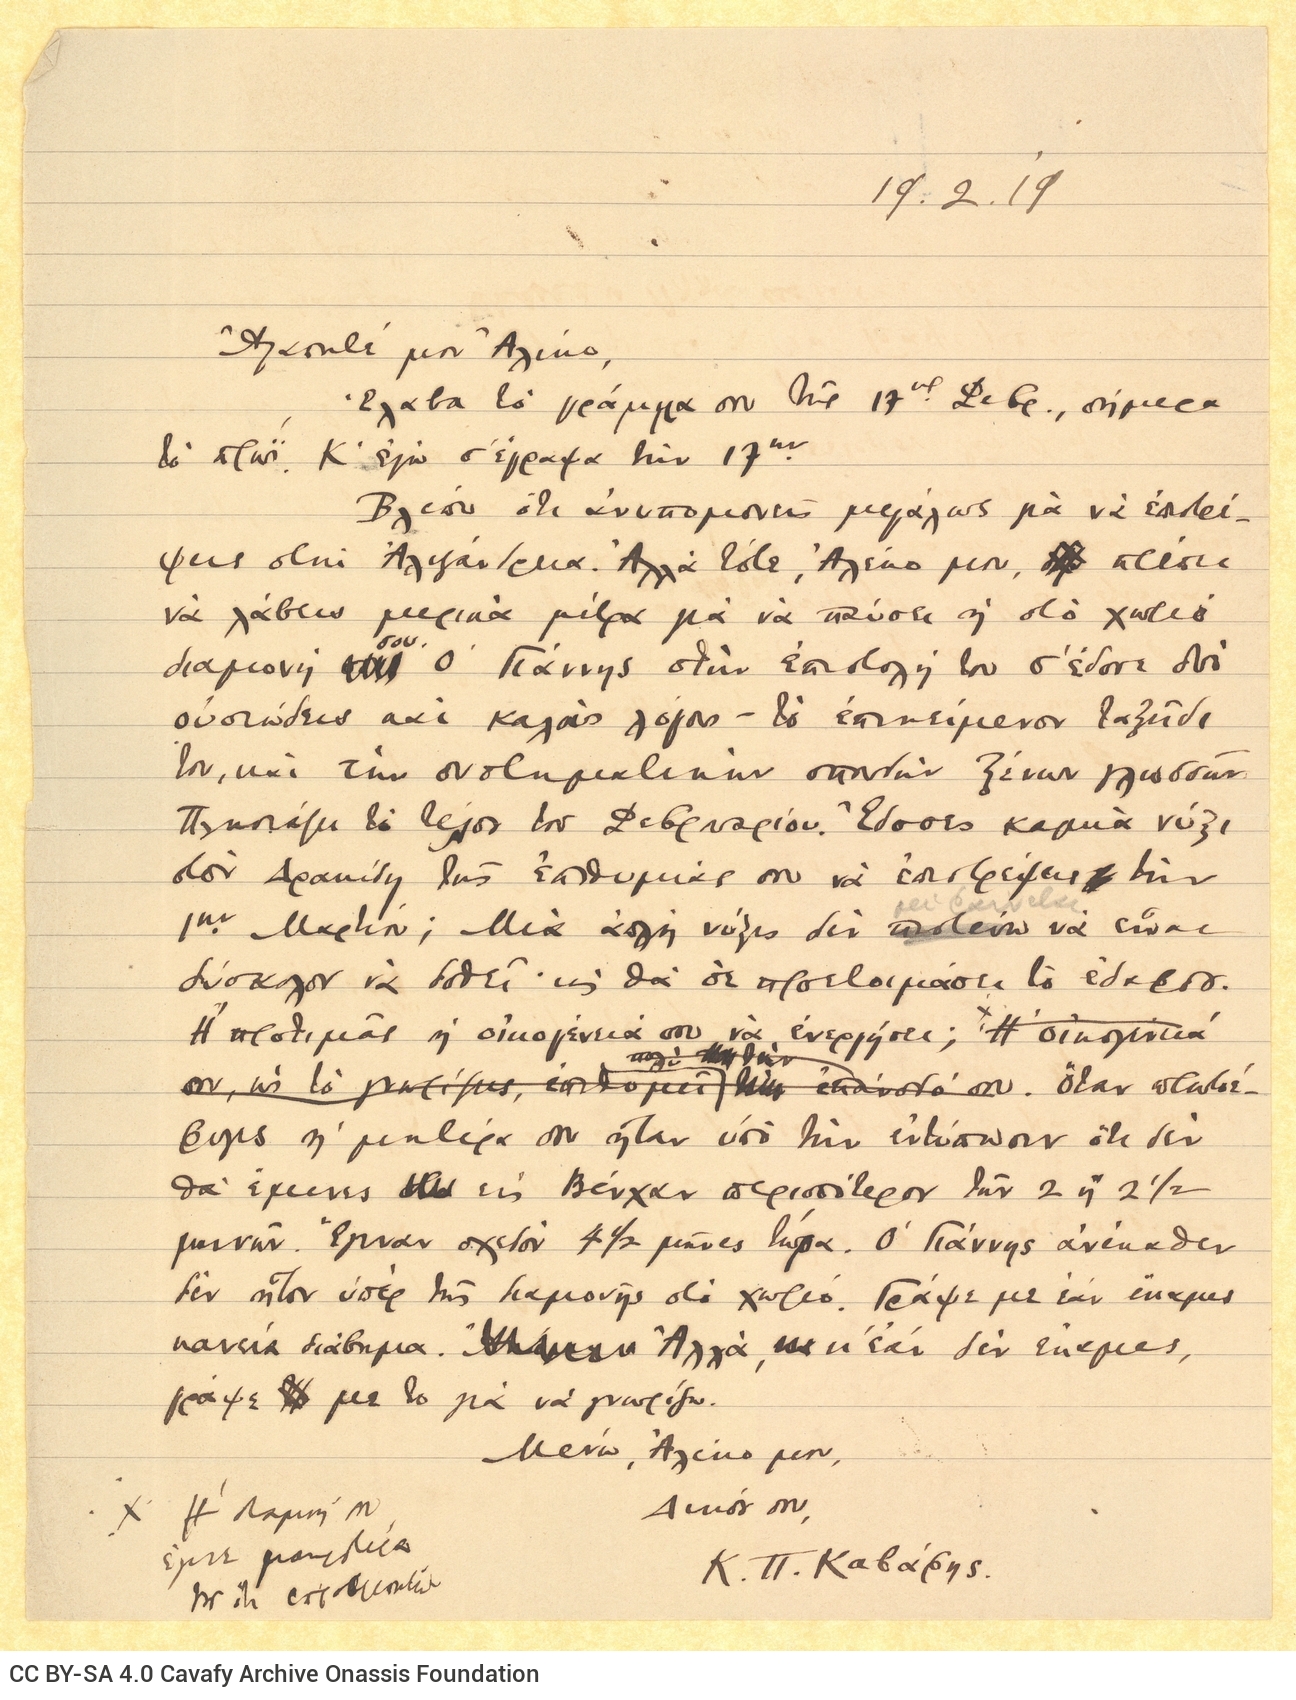 19.2.19
Ἀγαπητέ μου Ἀλέκο,
Ἔλαβα τὸ γράμμα σου τῆς 17ης Φεβρ., σήμερα
τὸ πρωΐ. Κ' ἐγὼ σ' ἔγραψα τὴν 17ην.
Βλέπω ὅτι ἀνυπομονεῖς μεγάλως γιὰ νὰ ἐπιστρέ-
ψεις στὴν Ἀλεξάνδρεια. Ἀλλὰ τότε, Ἀλέκο μου, πρέπει
νὰ λάβεις μερικὰ μέτρα γιὰ νὰ παύσει ἡ στὸ χωριὸ
διαμονή σου. Ὁ Γιάννης στὴν ἐπιστολή του σ' ἔδωσε δυὸ
οὐσιώδεις καὶ καλοὺς λόγους – τὸ ἐπικείμενον ταξεῖδι
του, καὶ τὴν συστηματικὴν σπουδὴν ξένων γλωσσῶν.
Πλησιάζει τὸ τέλος τοῦ Φεβρουαρίου. Ἔδωσες καμιὰ νύξι
στὸν Δρακίδη τῆς ἐπιθυμίας σου νὰ ἐπιστρέψεις τὴν
1ην Μαρτίου; Μιὰ ἁπλῆ νύξις δὲν πιστεύω νὰ εἶναι
με φαίνεται
δύσκολον νὰ δοθεῖ· καὶ θὰ σὲ προετοιμάσει τὸ ἔδαφος.
Ἢ προτιμᾶς ἡ οἰκογένειά σου νὰ ἐνεργήσει; Χ Ἡ οἰκογένειά
σου, ὡς τὸ γνωρίζεις, ἐπιθυμεῖ πολὺ τὴν ἐπάνοδό σου. Ὅταν πρωτοέ-
φυγες ἡ μητέρα σου ἦταν ὑπὸ τὴν ἐντύπωσιν ὅτι δὲν
θὰ ἔμενες εἰς Βένχαν περισσότερον τῶν 2 ἢ 2 1/2
μηνῶν. Ἔγιναν σχεδὸν 4 1/2 μῆνες τώρα. Ὁ Γιάννης ἀνέκαθεν
δὲν ἦτον ὑπὲρ τῆς διαμονῆς στὸ χωριό. Γράψε με ἐὰν ἔκαμες
κανένα διάβημα. Ἀλλά, κ' ἐὰν δὲν ἔκαμες,
γράψε με το γιὰ νὰ γνωρίζω.
Μένω, Ἀλέκο μου,
Δικός σου,
Κ. Π. Καβάφης.
Χ Ἡ διαμονή σου
CC BY-SA 4.0 Cavafy Archive Onassis Foundation